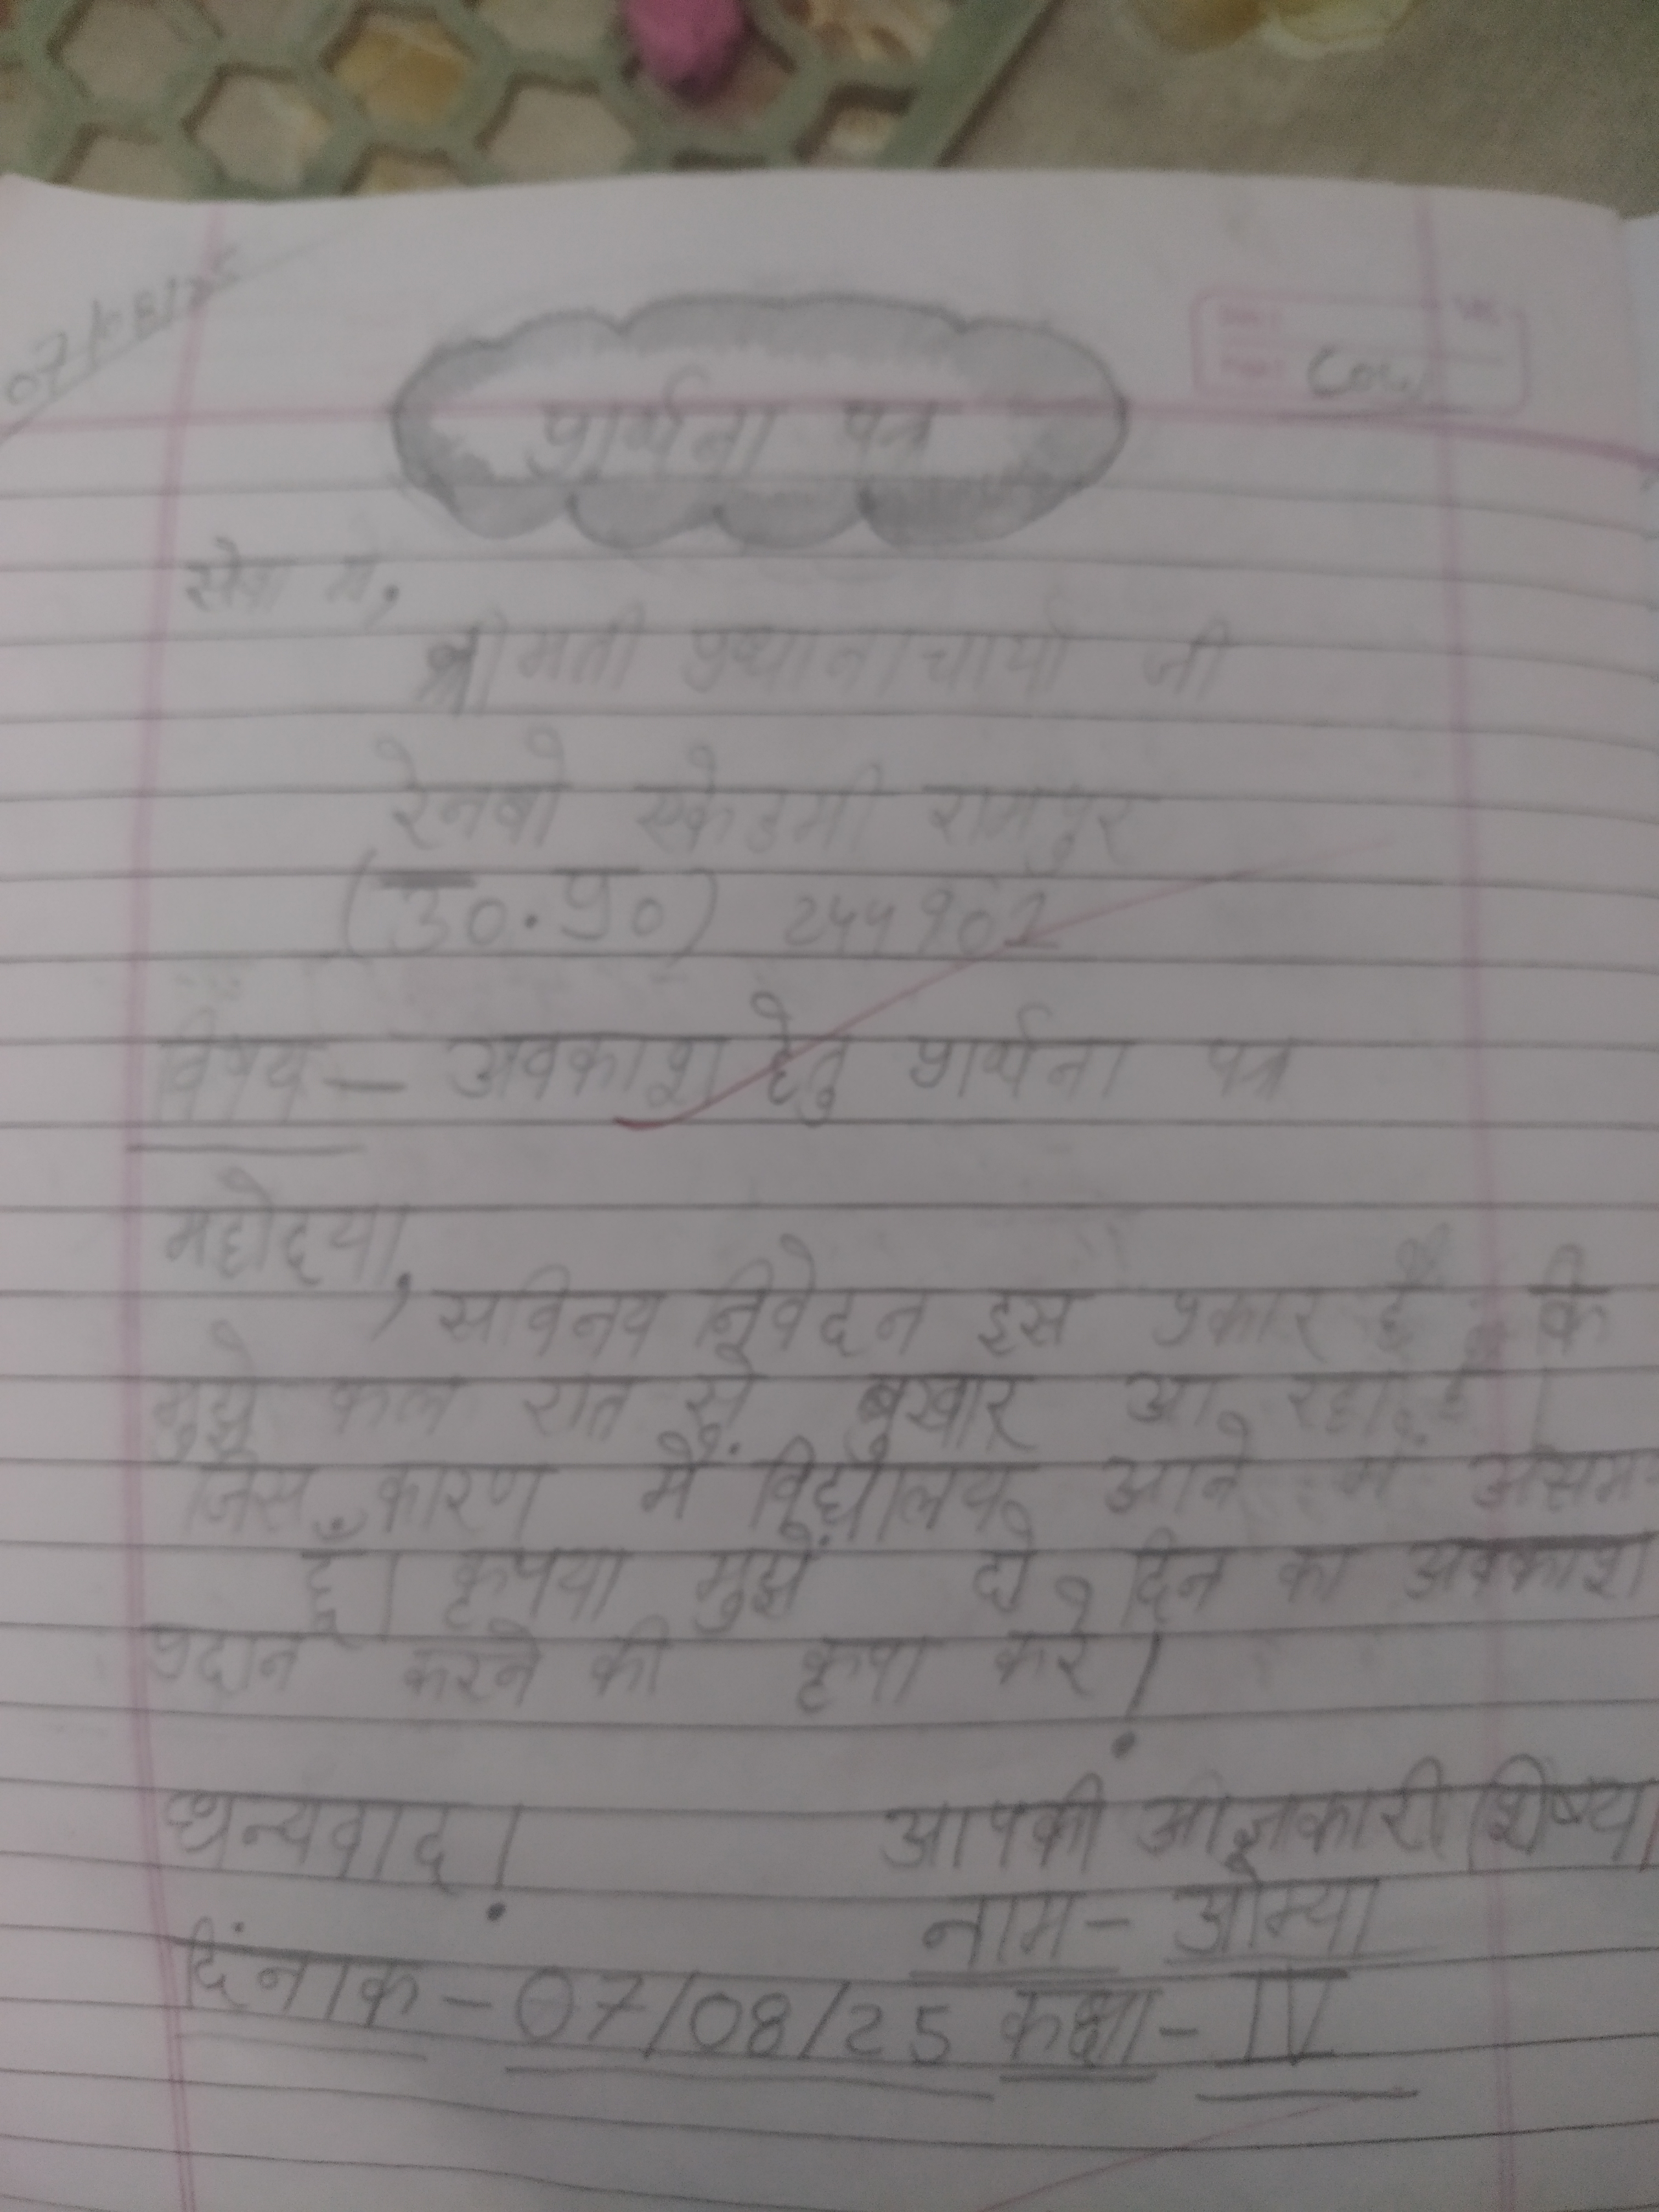 07/08/25
प्रार्थना पत्र
सेवा में,
श्रीमती प्रधानाचार्या जी
रेनबो एकेडमी रामपुर
(उ०.प्र०) 244902
विषय – अवकाश हेतु प्रार्थना पत्र
महोदया,
सविनय निवेदन इस प्रकार है कि
मुझे कल रात से बुखार आ रहा है।
जिस कारण मैं विद्यालय आने में असम
हूँ। कृपया मुझे दो दिन का अवकाश
प्रदान करने की कृपा करे!
धन्यवाद! आपकी आज्ञाकारी शिष्या
नाम – ओम्या
दिंनाक – 07/08/25 कक्षा – IV